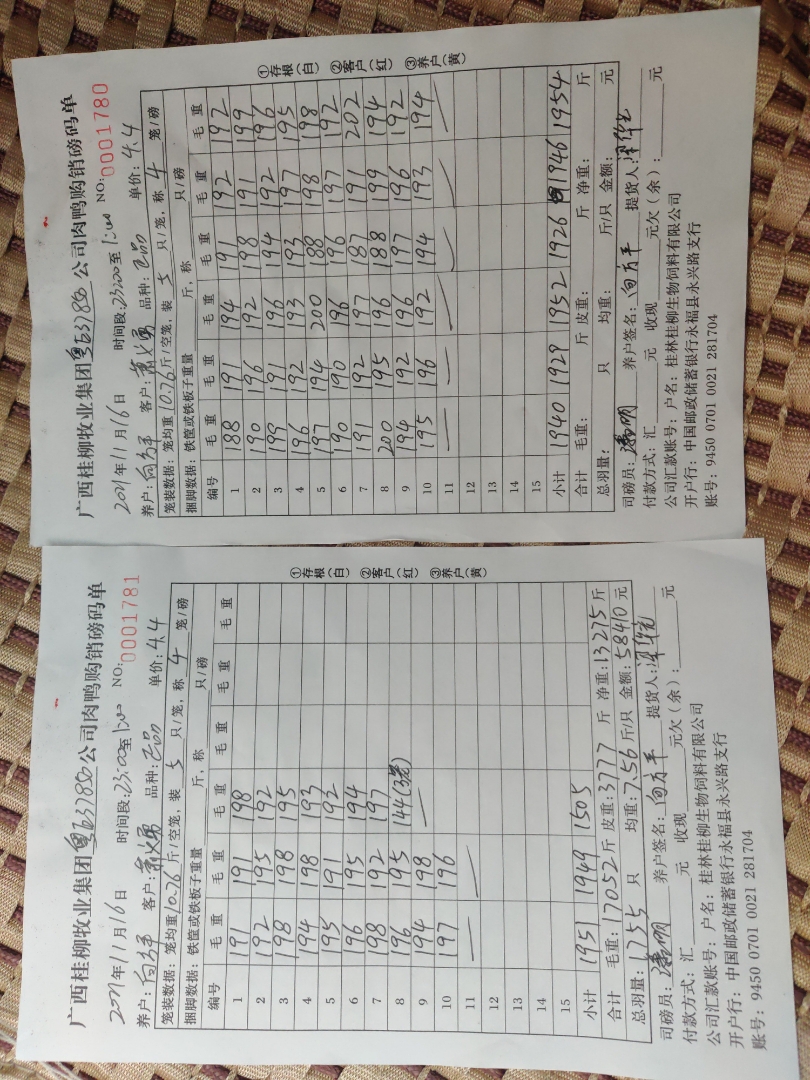 广西桂柳牧业集团粤B37880公司肉鸭购销磅码单
2021年11月16日 时间段:23:00至1:00 NO:0001780
养户:向方平 客户: 品种: 单价:4.4
笼装数据:笼均重10.76斤/空笼,装5只/笼,称4笼/磅
捆脚数据:铁筐或铁板子重量 斤,称 只/磅
编号 毛重 毛重 毛重 毛重 毛重 毛重
1 188 191 194 191 192 192
2 190 196 192 198 191 199
3 199 191 196 194 192 196
4 196 192 193 193 197 195
5 197 194 200 188 198 198
6 190 190 196 196 197 192
7 191 192 197 187 191 202
8 200 195 196 188 199 194
9 194 192 196 197 196 192
10 195 196 192 194 193 194
11
12
13
14
15
小计 1940 1929 1952 1926 1946 1954
合计 毛重: 斤 皮重: 斤 净重: 斤
总羽量: 只 均重: 斤/只 金额: 元
司磅员: 养户签名:向方平 提货人:
付款方式:汇 元 收现 元欠(余): 元
公司汇款账号:户名:桂林桂柳生物饲料有限公司
开户行:中国邮政储蓄银行永福县永兴路支行
账号:9450 0701 0021 281704
①存根(白) ②客户(红) ③养户(黄)
广西桂柳牧业集团粤B37880公司肉鸭购销磅码单
2021年11月16日 时间段:23:00至1:00 NO:0001781
养户:向方平 客户: 品种: 单价:4.4
笼装数据:笼均重10.76斤/空笼,装5只/笼,称4笼/磅
捆脚数据:铁筐或铁板子重量 斤,称 只/磅
编号 毛重 毛重 毛重 毛重 毛重
1 191 191 198
2 192 195 192
3 198 198 195
4 194 198 193
5 195 191 192
6 196 195 194
7 198 192 197
8 196 195 144(3笼)
9 194 198
10 197 196
11
12
13
14
15
小计 1951 1949 1505
合计 毛重:17052斤 皮重:3777斤 净重:13275斤
总羽量:1755只 均重:7.56斤/只 金额:58410元
司磅员: 养户签名:向方平 提货人:
付款方式:汇 元 收现 元欠(余): 元
公司汇款账号:户名:桂林桂柳生物饲料有限公司
开户行:中国邮政储蓄银行永福县永兴路支行
账号:9450 0701 0021 281704
①存根(白) ②客户(红) ③养户(黄)